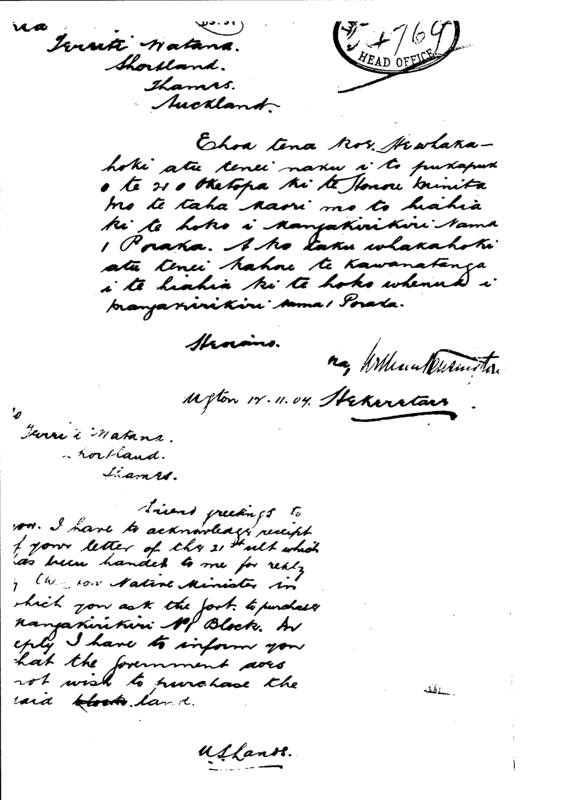 Territi Watana.
Shortland.
Thames.
Auckland.
54769
HEAD OFFICE
Ehoa tena koe, He whaka-
hoki atu tenei naku i to pukapuk
o te 21 o Oketopa ki te Honore Minita
mo te taha Maori mo to hiahia
ki te hoko i Mangakirikiri Nama
1 Poraka. A ko taku whakahoki
atu tenei kahore te Kawanatanga
i te hiahia ki te hoko whenua i
Mangakirikiri nama 1 Poraka.
Heoiano.
na,
Wgton 12.11.04. Hekeretari
Watana.
hortland.
Thames.
Friend greetings to
you. I have to acknowledge receipt
f your letter of the 21st ult which
as been handed to me for reply
y the Hon Native Minister in
hich you ask the Govt. to purchase
Mangakirikiri No 1 Block. In
eply I have to inform you
hat the Government does
not wish to purchase the
said block land.
U.S. Lands.